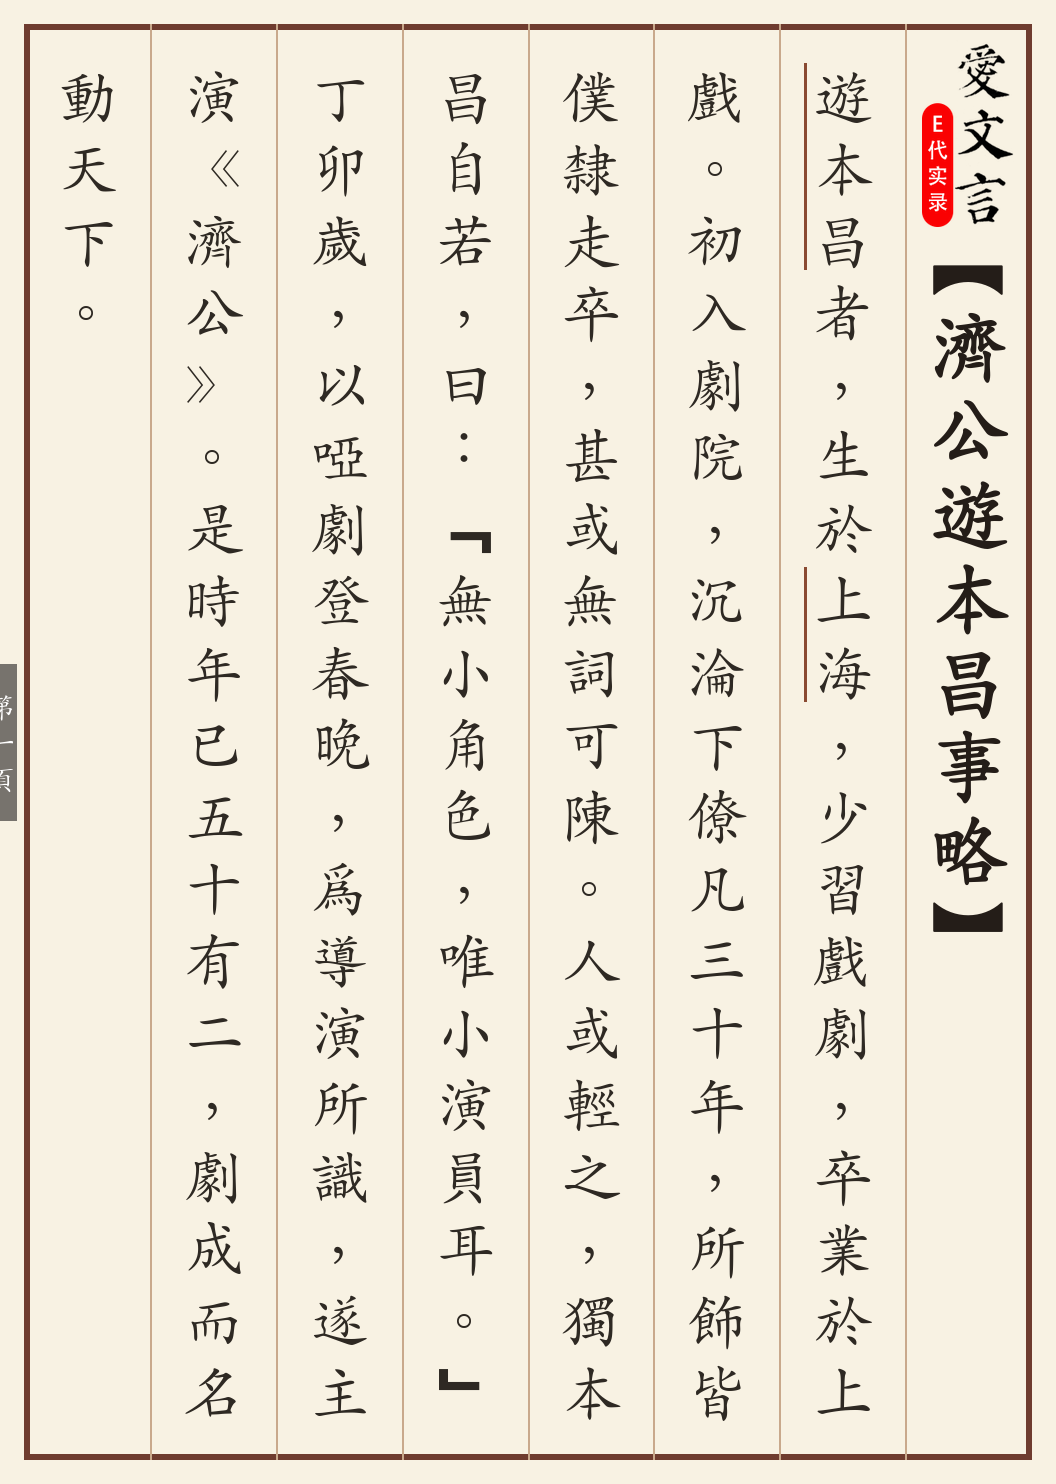 愛文言
E代实录
【濟公遊本昌事略】
遊本昌者，生於上海，少習戲劇，卒業於上
戲。初入劇院，沉淪下僚凡三十年，所飾皆
僕隸走卒，甚或無詞可陳。人或輕之，獨本
昌自若，曰：『無小角色，唯小演員耳。』
丁卯歲，以啞劇登春晚，爲導演所識，遂主
演《濟公》。是時年已五十有二，劇成而名
動天下。
第一頁